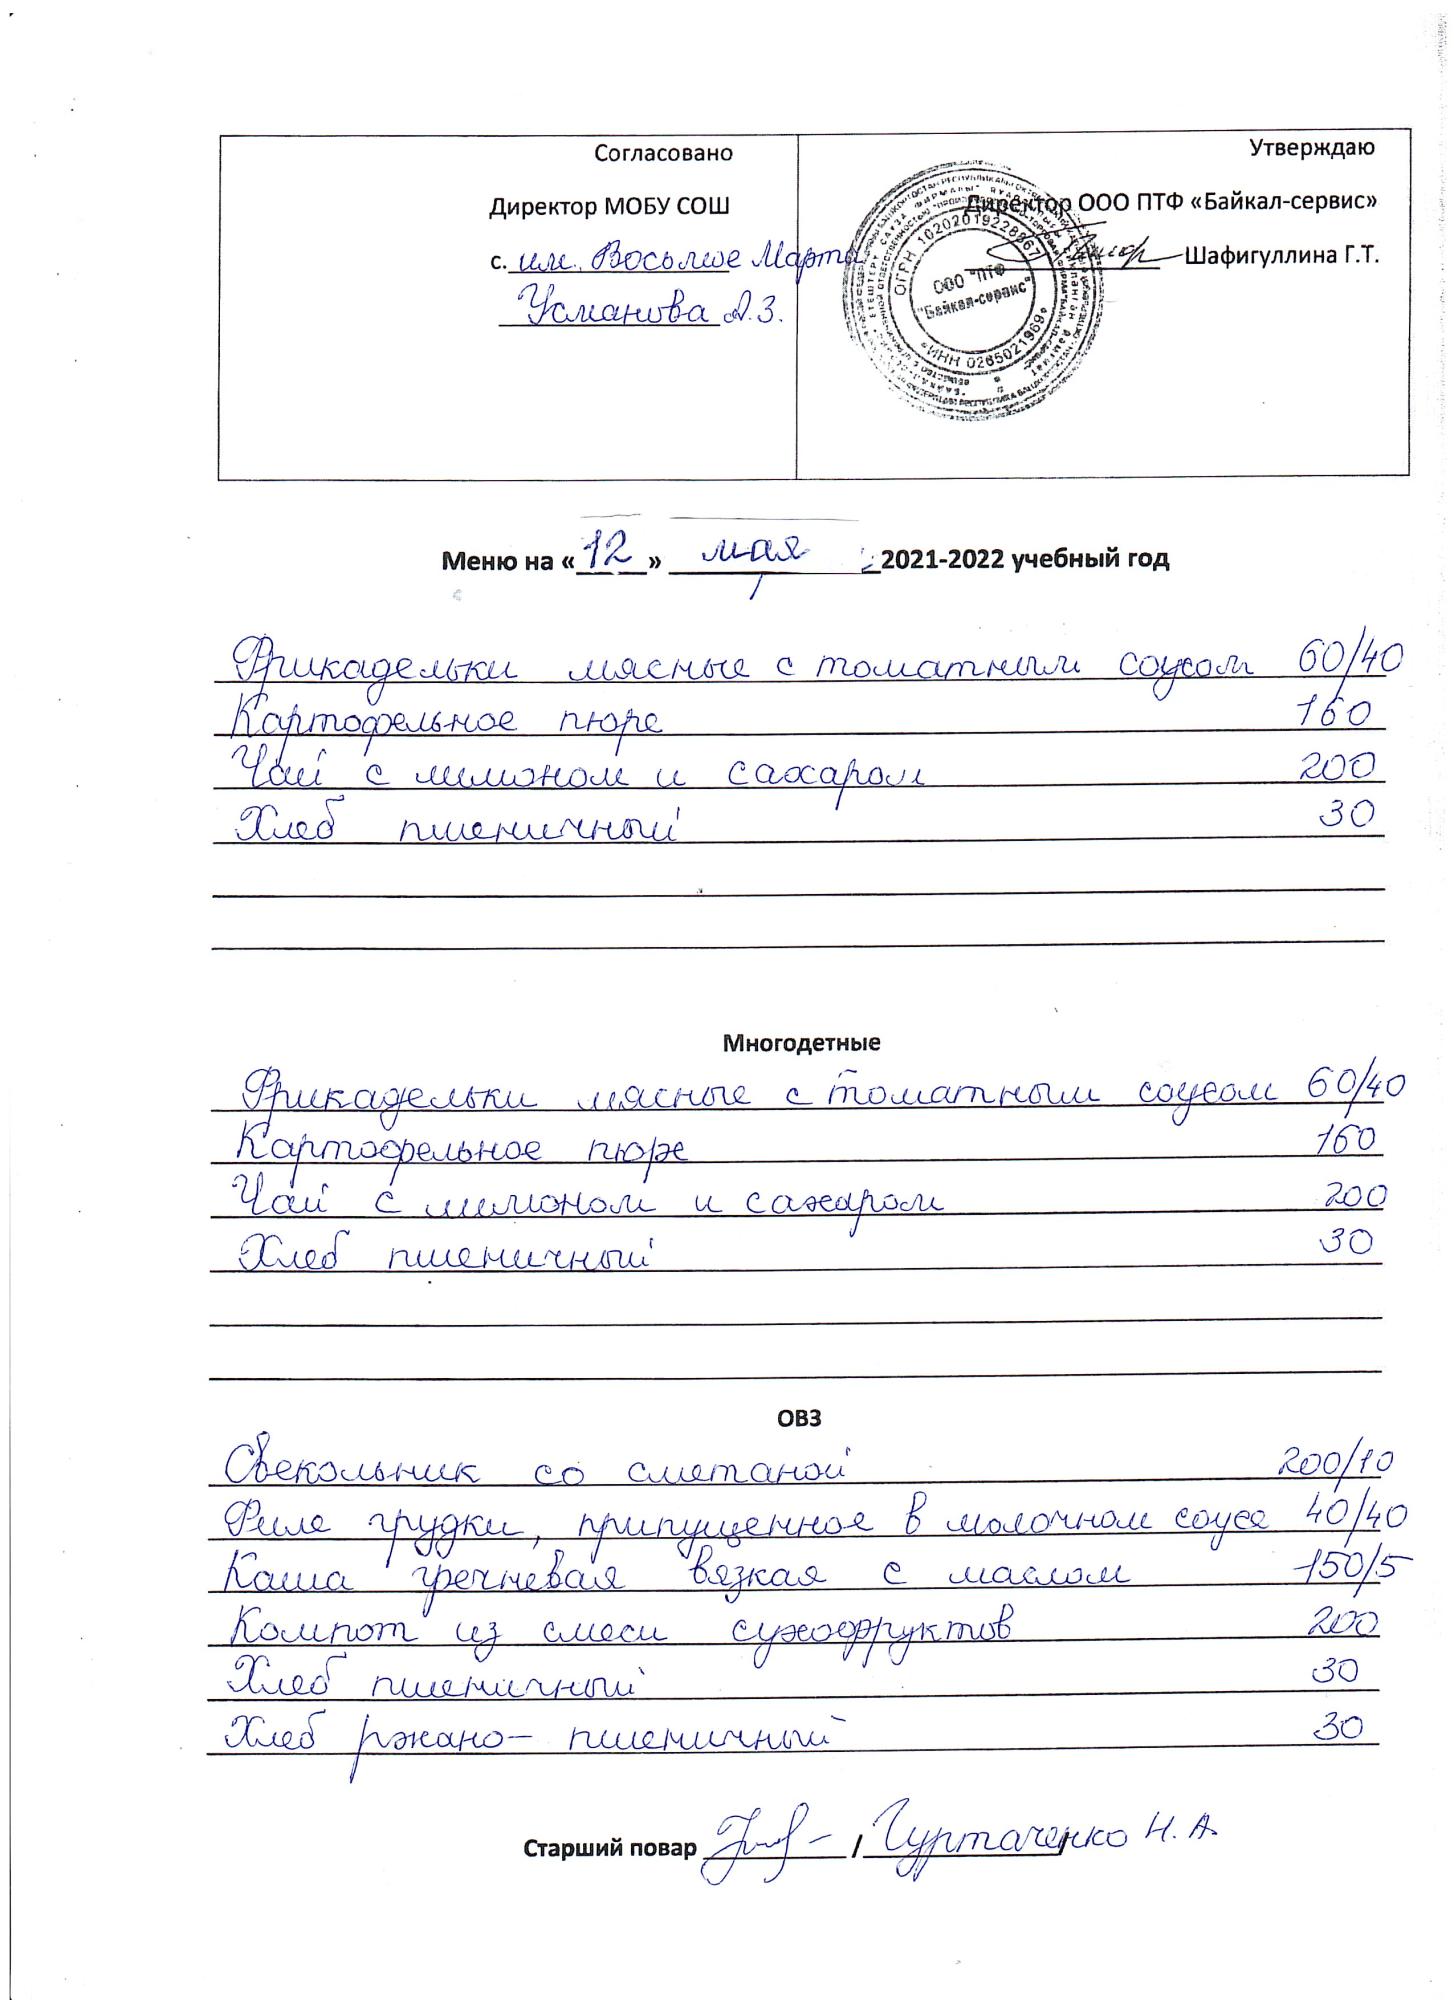 Согласовано
Директор МОБУ СОШ
с. им. Восьмое Марта
Усманова А.З.
Утверждаю
Директор ООО ПТФ «Байкал-сервис»
Шафигуллина Г.Т.
ОГРН 1020201922886
ООО "ПТФ
"Байкал-сервис"
ИНН 0265021969
Меню на «12» мая 2021-2022 учебный год
Фрикадельки мясные с томатным соусом 60/40
Картофельное пюре 160
Чай с лимоном и сахаром 200
Хлеб пшеничный 30
Многодетные
Фрикадельки мясные с томатным соусом 60/40
Картофельное пюре 160
Чай с лимоном и сахаром 200
Хлеб пшеничный 30
ОВЗ
Свекольник со сметаной 200/10
Филе грудки, припущенное в молочном соусе 40/40
Каша гречневая вязкая с маслом 150/5
Компот из смеси сухофруктов 200
Хлеб пшеничный 30
Хлеб ржано- пшеничный 30
Старший повар / Гуртаченко Н.А.